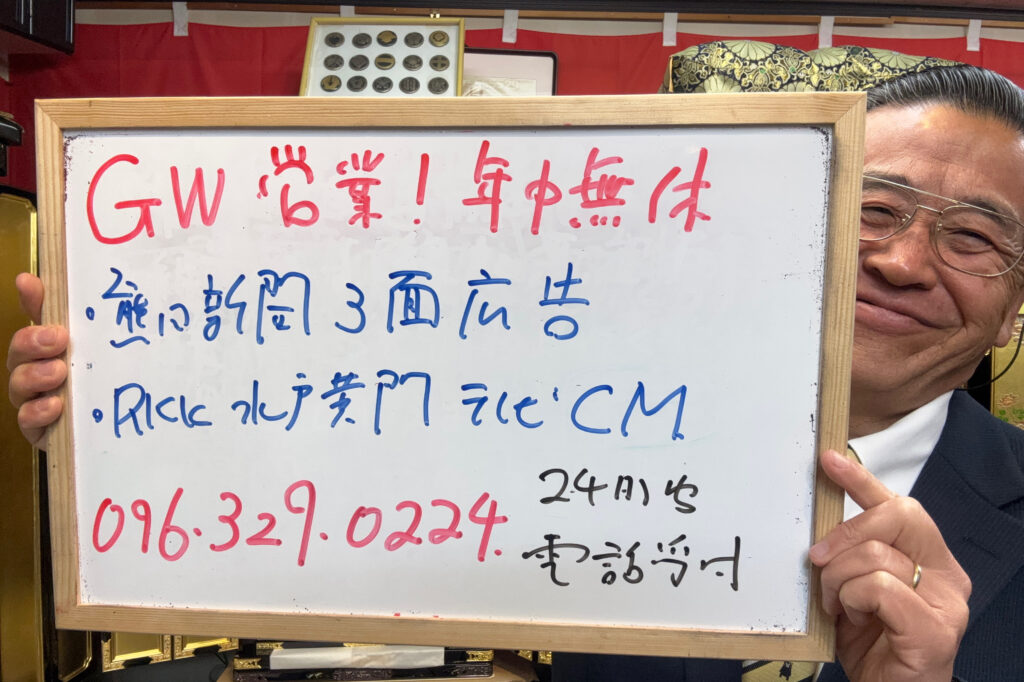 GW営業！年中無休
・熊日新聞3面広告
・RKK水戸黄門テレビCM
096.329.0224.
24時間
電話受付